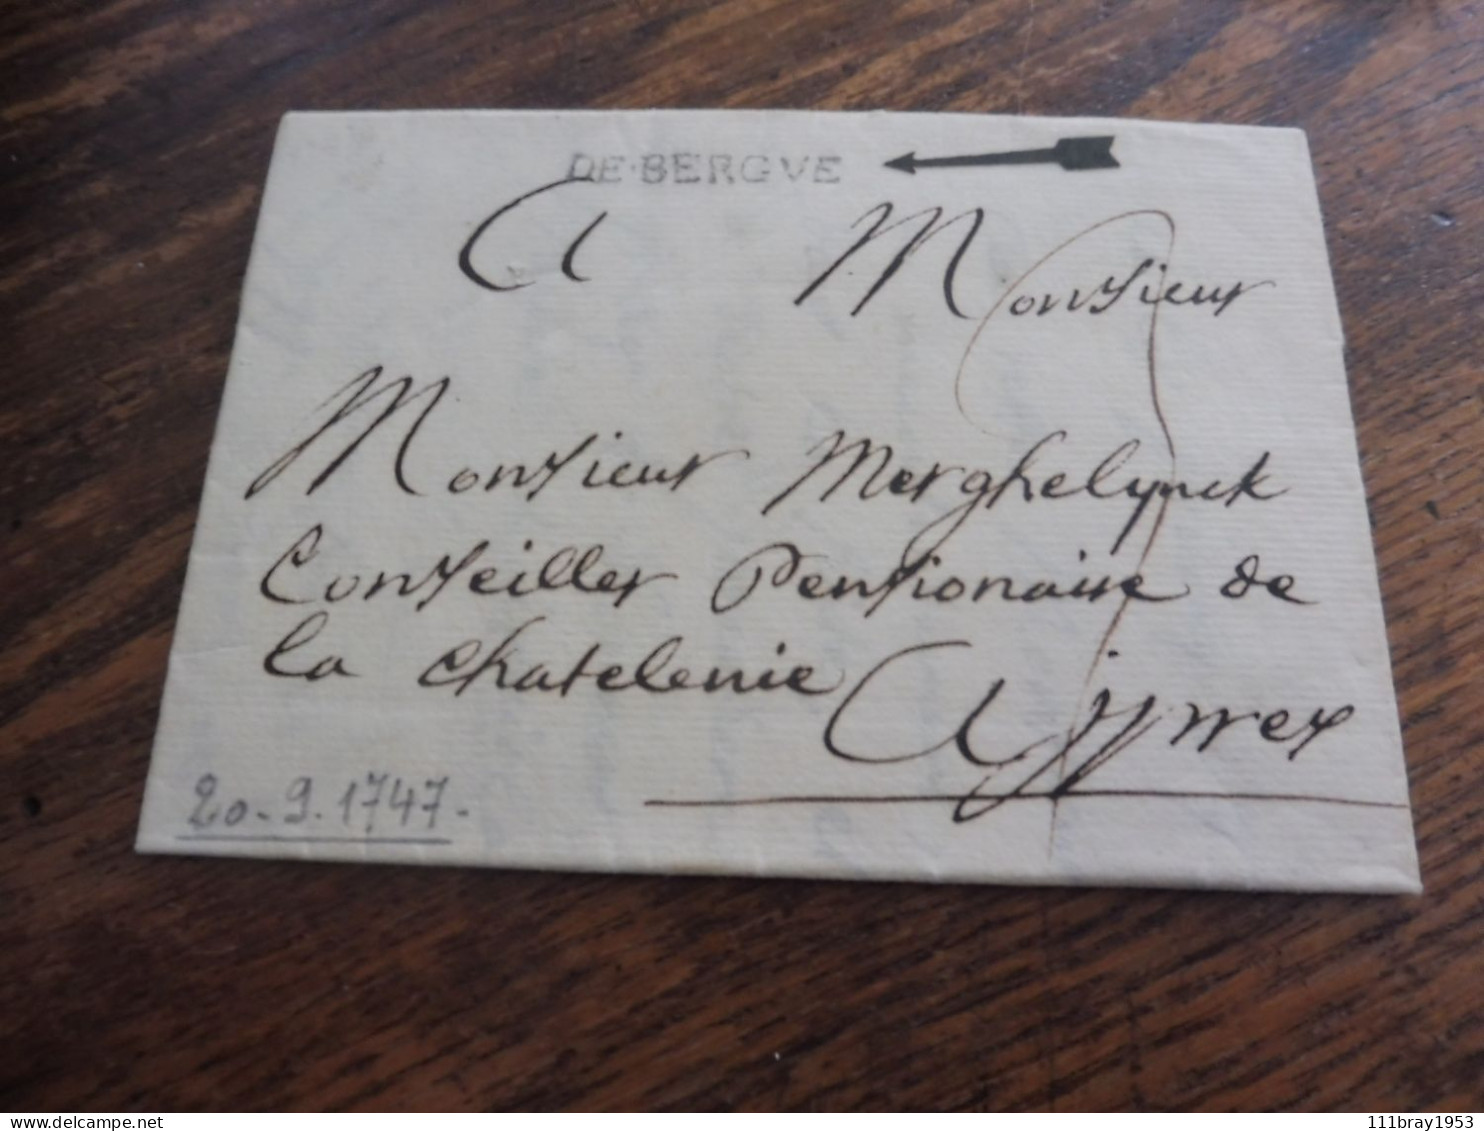 DE·BERGVE
A Monsieur
Monsieur Merghelynck
Conseiller Pensionaire de
la chatelenie A ijpres
20-9.1747-
delcampe.net
111bray1953